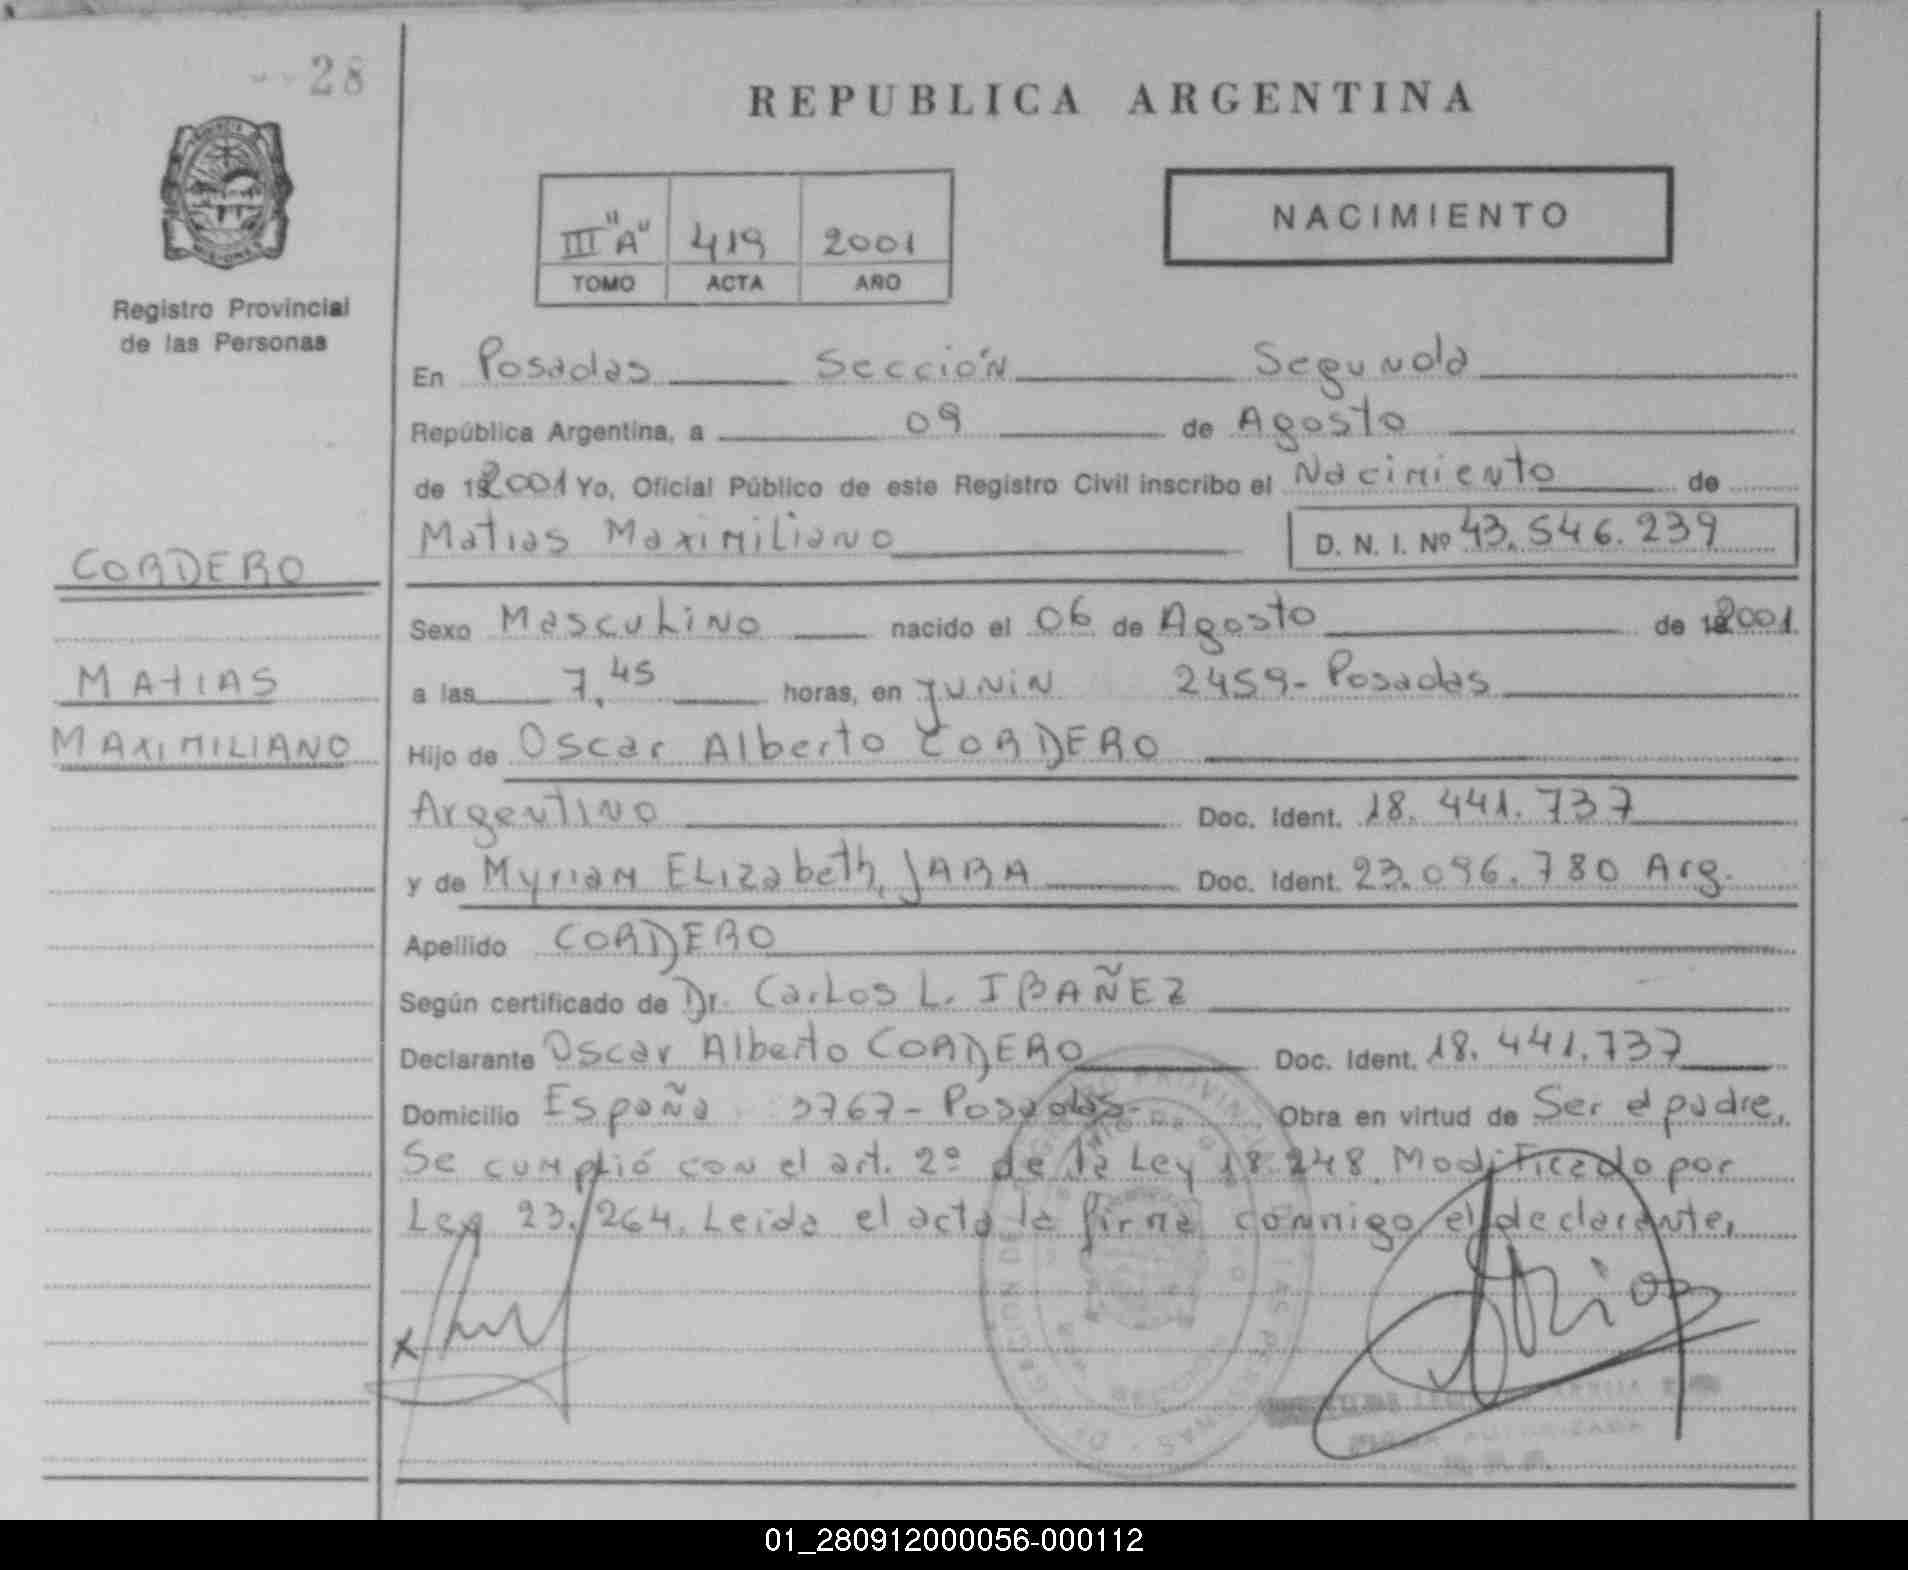 28
REPUBLICA ARGENTINA
NACIMIENTO
III "A" 419 2001
TOMO ACTA AÑO
Registro Provincial
de las Personas
En Posadas Sección Segunda
República Argentina, a 09 de Agosto
de 192001 Yo, Oficial Público de este Registro Civil inscribo el Nacimiento de
Matias Maximiliano D. N. I. Nº 43.546.239
CORDERO
MATIAS
MAXIMILIANO
Sexo Masculino nacido el 06 de Agosto de 192001.
a las 7,45 horas, en Junin 2459- Posadas
Hijo de Oscar Alberto CORDERO
Argentino Doc. Ident. 18.441.737
y de Myriam Elizabeth, JARA Doc. Ident. 23.096.780 Arg.
Apellido CORDERO
Según certificado de Dr. Carlos L. IBAÑEZ
Declarante Oscar Alberto CORDERO Doc. Ident. 18.441.737
Domicilio España 3767- Posadas- Obra en virtud de Ser el padre.
Se cumplió con el art. 2º de la Ley 18.248 Modificado por
Ley 23.264. Leida el acta la firma conmigo el declarante,
x
Rios
01_280912000056-000112